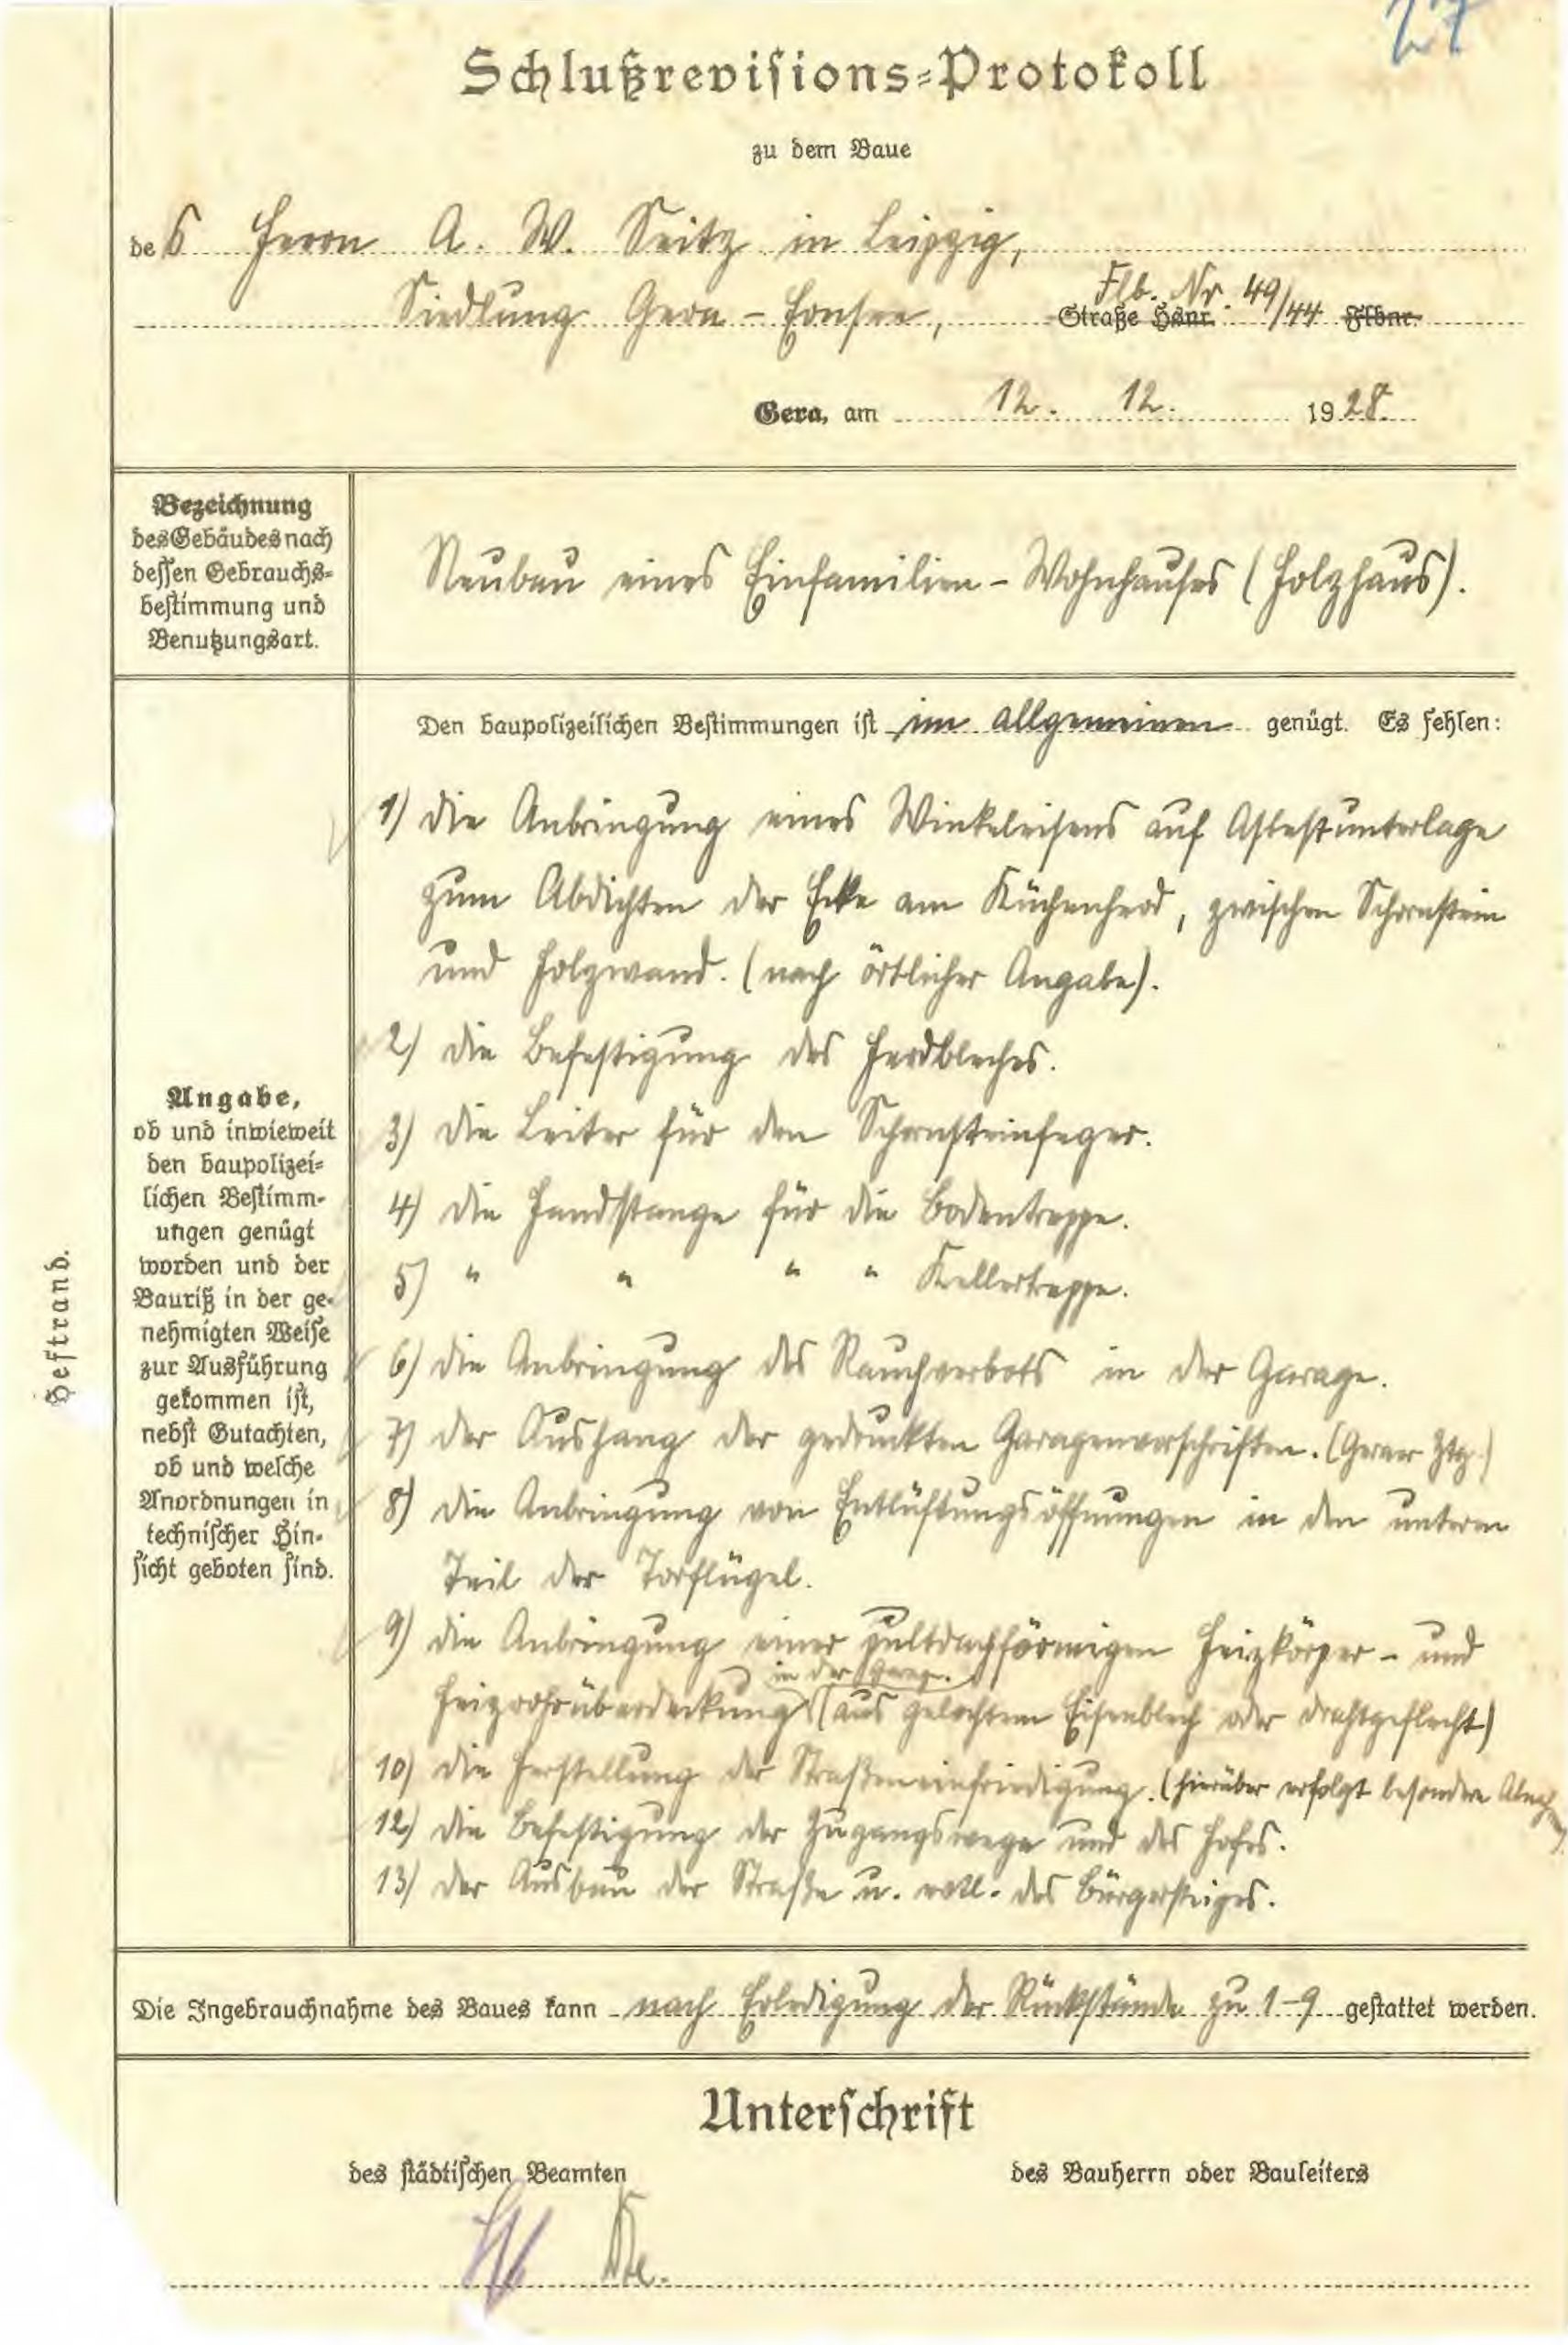 27
Schlußrevisions-Protokoll
zu dem Baue
des Herrn A. W. Seitz in Leipzig,
Flb. Nr. 49/44
Siedlung Gera - Ernsee, Straße Hsnr. Flbnr.
Gera, am 12. 12. 1928.
Bezeichnung
des Gebäudes nach
dessen Gebrauchs-
bestimmung und
Benutzungsart.
Neubau eines Einfamilien-Wohnhauses (Holzhaus).
Den baupolizeilichen Bestimmungen ist im allgemeinen genügt. Es fehlen:
1) die Anbringung eines Winkeleisens auf Asbestunterlage
zum Abdichten der Ecke am Küchenherd, zwischen Schornstein
und Holzwand. (nach örtlicher Angabe).
2) die Befestigung des Herdbleches.
3) die Leiter für den Schornsteinfeger.
4) die Handstange für die Bodentreppe.
5) " " " " Kellertreppe.
6) die Anbringung des Rauchverbots in der Garage.
7) der Aushang der gedruckten Garagenvorschriften. (Geraer Ztg.)
8) die Anbringung von Entlüftungsöffnungen in den unteren
Teil der Torflügel.
9) die Anbringung einer pultdachförmigen Heizkörper- und
in der Garage.
Heizrohrüberdeckung (aus gelochtem Eisenblech oder Drahtgeflecht)
10) die Herstellung der Straßeneinfriedigung. (hierüber erfolgt besondere
12) die Befestigung der Zugangswege und des Hofes.
13) der Ausbau der Straße u. evtl. des Bürgersteiges.
Angabe,
ob und inwieweit
den baupolizei-
lichen Bestimm-
ungen genügt
worden und der
Bauriß in der ge-
nehmigten Weise
zur Ausführung
gekommen ist,
nebst Gutachten,
ob und welche
Anordnungen in
technischer Hin-
sicht geboten sind.
Heftrand.
Die Ingebrauchnahme des Baues kann nach Erledigung der Rückstände zu 1-9 gestattet werden.
Unterschrift
des städtischen Beamten des Bauherrn oder Bauleiters